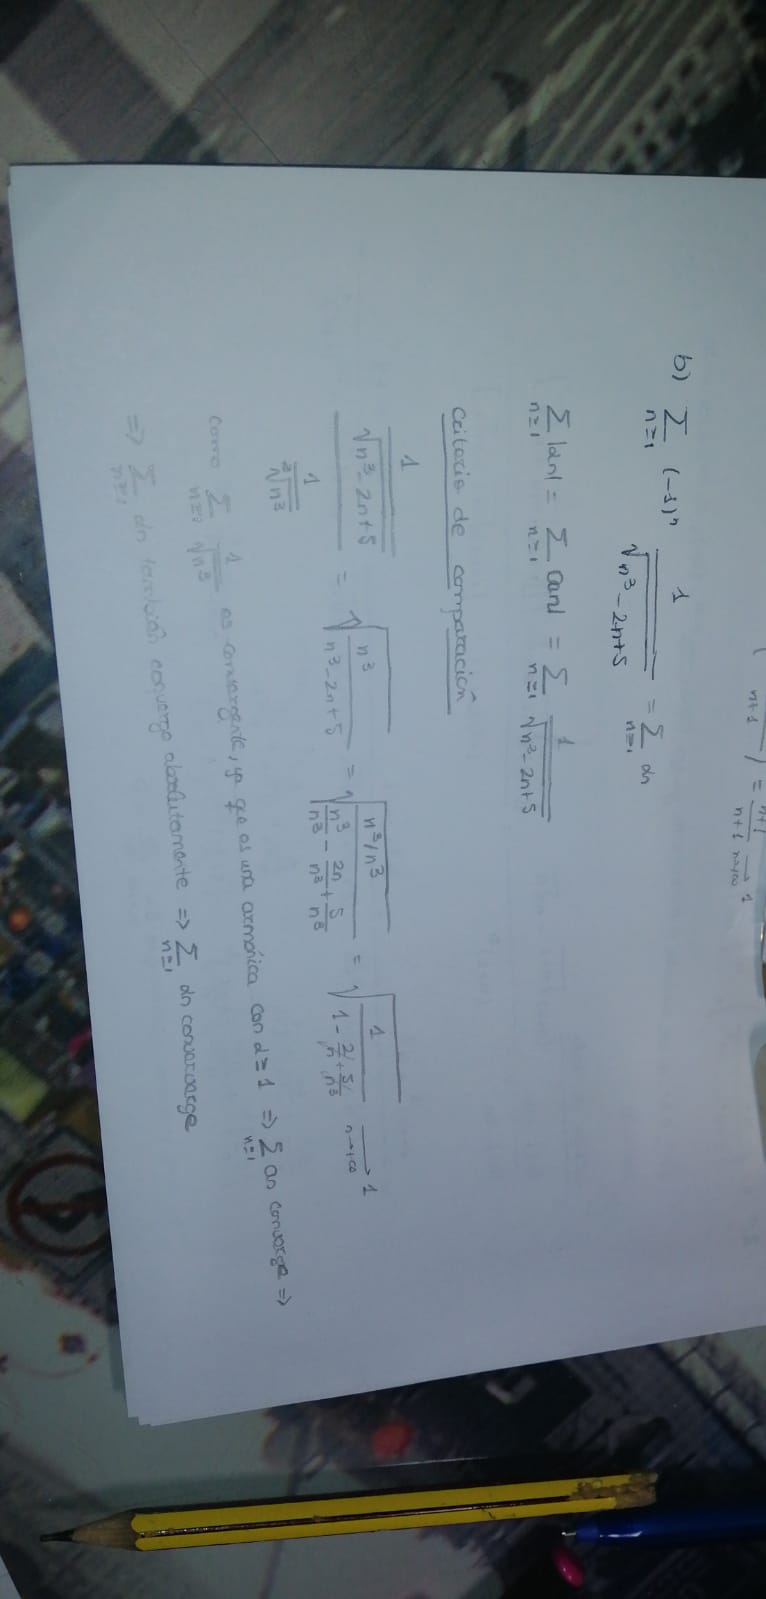 n+1 ) = n+1/n+1 ⟶ n→+∞ 1
b) ∑ n≥1 (-1)ⁿ 1/√(n³-2n+5) = ∑ n≥1 dn
∑ n≥1 |dn| = ∑ n≥1 |an| = ∑ n≥1 1/√(n³-2n+5)
Criterio de comparación
(1/√(n³-2n+5))/(1/²√n³) = √(n³/(n³-2n+5)) = √((n³/n³)/(n³/n³ - 2n/n³ + 5/n³)) = √(1/(1 - 2/n + 5/n³)) ⟶ n→+∞ 1
como ∑ n≥1 1/√n³ es convergente, ya que es una armónica con α≥1 ⇒ ∑ n≥1 an converge ⇒
⇒ ∑ n≥1 dn también converge absolutamente ⇒ ∑ n≥1 dn convervarge